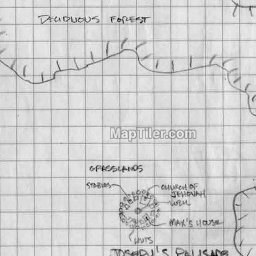 DECIDUOUS FOREST
MapTiler.com
GRASSLANDS
STABLES
CHURCH OF
JEHOVAH
WELL
MAX'S HOUSE
HUTS
JOSEPH'S PALISADE